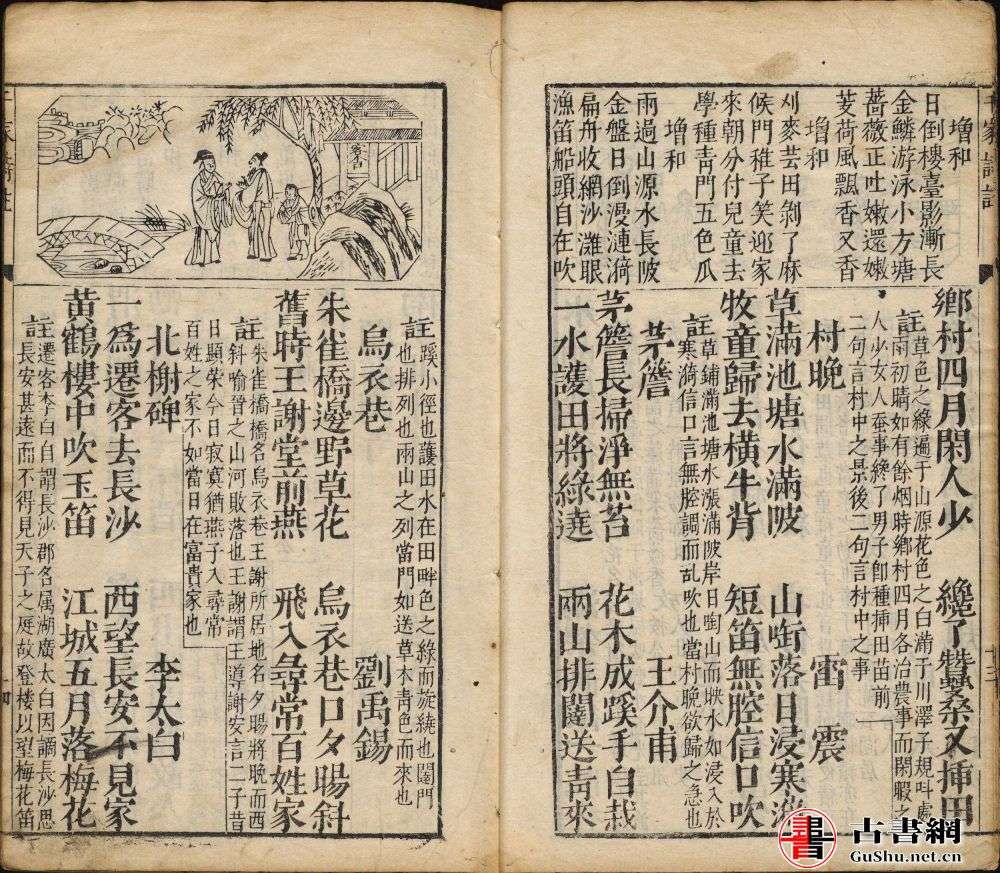 千家詩註
增和
日倒樓臺影漸長
金鱗游泳小方塘
薔薇正吐嫩還嫩
芰荷風飄香又香
增和
刈麥芸田剝了麻
候門稚子笑迎家
來朝分付兒童去
學種青門五色瓜
增和
雨過山源水長陂
金盤日倒漫漣漪
扁舟收網沙灘眼
漁笛船頭自在吹
鄉村四月閑人少 纔了蠶桑又插田
註草色之綠遍于山源花色之白滿于川澤子規呌處
雨初晴如有餘烟時鄉村四月各治農事而閑暇之
人少女人蚕事終了男子卽種插田苗前
二句言村中之景後二句言村中之事
村晚 雷震
草滿池塘水滿陂 山銜落日浸寒漪
牧童歸去横牛背 短笛無腔信口吹
註草鋪滿池塘水漲滿陂岸日啣山而映水如浸入於
寒漪信口言無腔調而乱吹也當村晚欲歸之急也
茅簷 王介甫
茅簷長掃淨無苔 花木成蹊手自栽
一水護田將綠遶 兩山排闥送青來
註蹊小徑也護田水在田畔色之綠而旋繞也闥門
也排列也兩山之列當門如送草木青色而來也
烏衣巷 劉禹錫
朱雀橋邊野草花 烏衣巷口夕陽斜
舊時王謝堂前燕 飛入尋常百姓家
註朱雀橋橋名烏衣巷王謝所居地名夕陽將晚而西
斜喻晉之山河敗落也王謝謂王導謝安言二子昔
日顯榮今日寂寞猶燕子入尋常
百姓之家不如當日在富貴家也
北榭碑 李太白
一爲遷客去長沙 西望長安不見家
黄鶴樓中吹玉笛 江城五月落梅花
註遷客李白自謂長沙郡名属湖廣太白因謫長沙思
長安甚遠而不得見天子之庭故登楼以望梅花笛
千家詩註
書 古書網
GuShu.net.cn